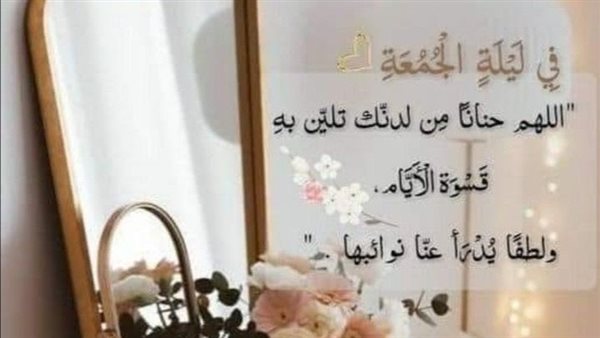 فِي لَيْلَةِ الْجُمُعَةِ
"اللهم حنانًا مِن لدنّك تليّن بهِ
قَسْوَة الْأَيَّام،
ولطفًا يُدْرَأ عنّا نوائبها . "